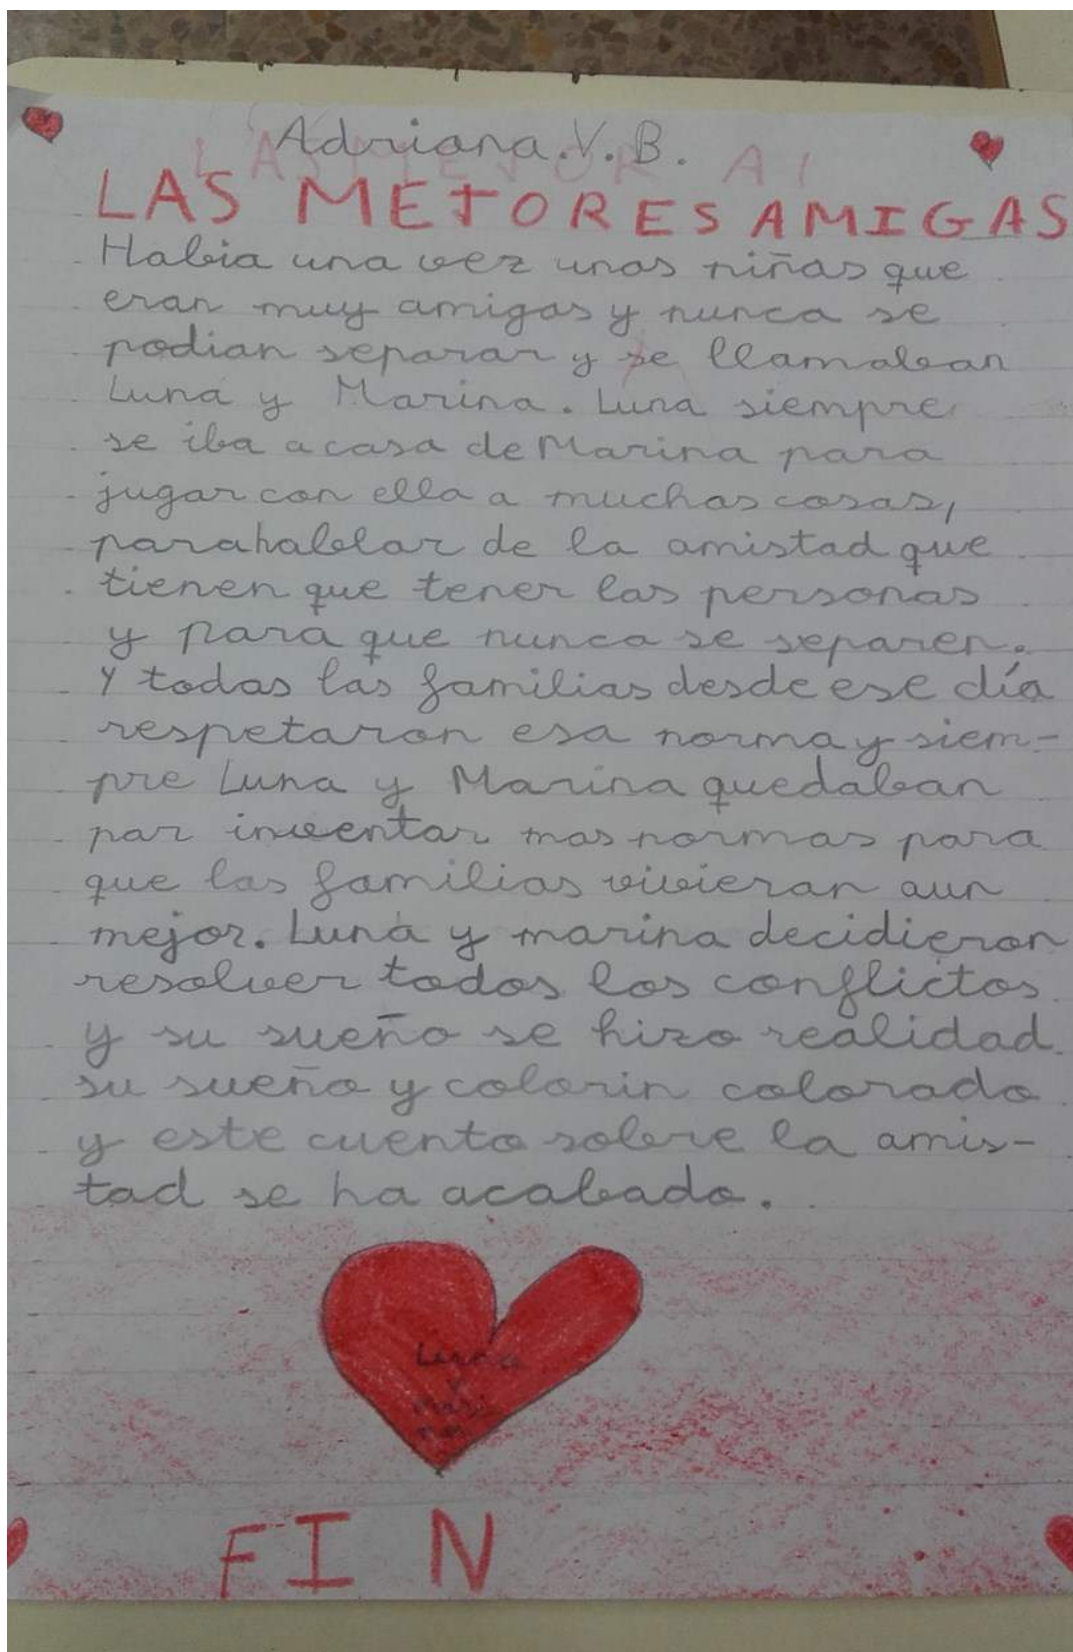 Adriana.V.B.
LAS MEJORES AMIGAS
Habia una vez unas niñas que
eran muy amigas y nunca se
podian separar y se llamaban
Luna y Marina. Luna siempre
se iba a casa de Marina para
jugar con ella a muchas cosas,
para hablar de la amistad que
tienen que tener las personas
y para que nunca se separen.
Y todas las familias desde ese día
respetaron esa norma y siem-
pre Luna y Marina quedaban
par inventar mas normas para
que las familias vivieran aun
mejor. Luna y marina decidieron
resolver todos los conflictos
y su sueño se hizo realidad
su sueño y colorin colorado
y este cuento sobre la amis-
tad se ha acabado.
Luna
FIN